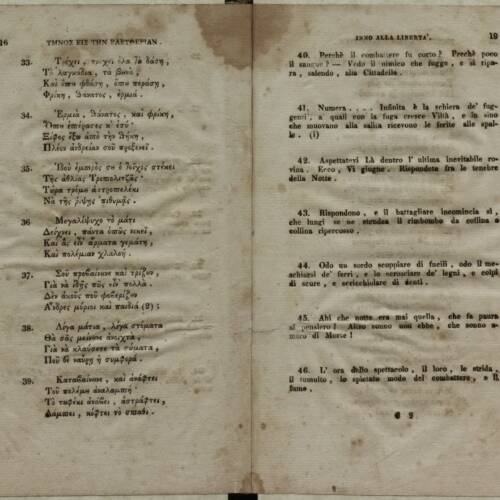 16 ΥΜΝΟΣ ΕΙΣ ΤΗΝ ΕΛΕΥΘΕΡΙΑΝ.
33. Τρέχει, τρέχει ὅλα τὰ δάση,
Τὰ λαγκάδια, τὰ βουνὰ,
Καὶ ὅπου φθάση, ὅπου περάση,
Φρίκη, θάνατος, ἐρμιά.
34. Ἐρμιά, θάνατος, καὶ φρίκη,
Ὅπου ἐπέρασες κ' ἐσύ·
Ξίφος ἔξω ἀπὸ τὴν θήκη,
Πλέον ἀνδρείαν σοῦ προξενεῖ.
35. Ἰδοὺ ἐμπρὸς ὁ τοῖχος στέκει
Τῆς ἀθλίας Τριπολιτζᾶς·
Τώρα τρόμου ἀστροπελέκι
Νὰ τῆς ῥίψης πιθυμᾶς.
36 Μεγαλόψυχο τὸ μάτι
Δείχνει, πάντα ὁπῶς νικεῖ,
Καὶ ἂς εἶν' ἅρματα γεμάτη,
Καὶ πολέμιαν χλαλοή.
37. Σοῦ προβαίνουνε καὶ τρίζουν,
Γιὰ νὰ ἰδῆς πῶς εἶν' πολλά·
Δὲν ἀκοῦς ποῦ φοβερίζουν
Ἄνδρες μύριοι καὶ παιδιά (2);
38. Λίγα μάτια, λίγα στόματα
Θὰ σᾶς μείνουνε ἀνοιχτὰ,
Γιὰ νὰ κλαύσετε τὰ σώματα,
Ποῦ θὲ νάὑρη ἡ συμφορά.
39. Καταβαίνουνε, καὶ ἀνάφτει
Τοῦ πολέμου ἀναλαμπή·
Τὸ τουφέκι ἀνάβει, ἀστράφτει,
Λάμπει, κόφτει τὸ σπαθί.
INNO ALLA LIBERTA'. 19
40. Perchè il combattere fu corto? Perchè poco
il sangue? — Vedo il nimico che fugge, e si ripa-
ra, salendo, alla Cittadella.
41. Numera.... Infinita è la schiera de' fug-
genti, a' quali con la fuga cresce Viltà, e in sino
che muovano alla salita ricevono le ferite alle spal-
le. (1)
42. Aspettatevi Là dentro l' ultima inevitabile ro-
vina. Ecco, Vi giugne. Rispondete fra le tenebre
della Notte.
43. Rispondono, e il battagliare incomincia sì,
che lungi se ne stendea il rimbombo da collina a
collina ripercosso.
44. Odo un sordo scoppiare di fucili, odo il me-
schiarsi de' ferri, e lo scrosciare de' legni, e colpi
di scure, e scricchiolare di denti.
45. Ahi che notte era mai quella, che fa paura
al pensiero! Altro sonno non ebbe, che sonno a-
maro di Morte!
46. L' ora dello spettacolo, il loco, le strida,
il tumulto, lo spietato modo del combattere, e il
fumo.